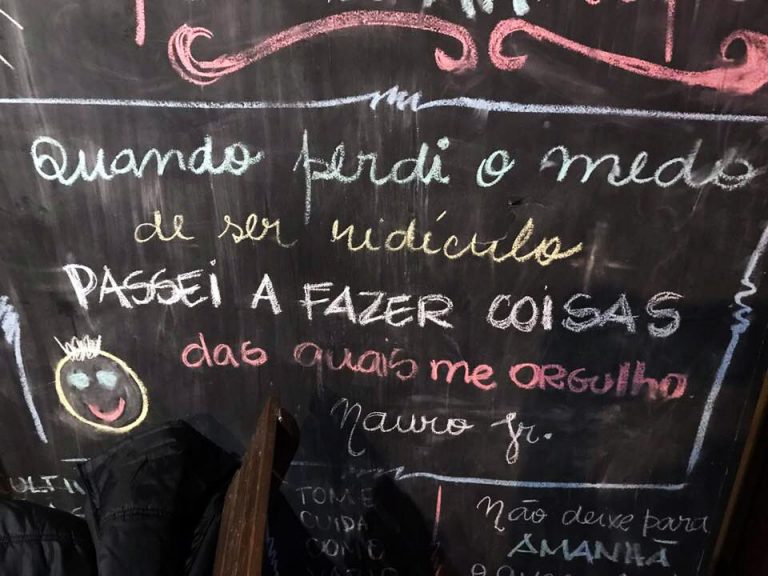 Quando perdi o medo
de ser ridículo
PASSEI A FAZER COISAS
das quais me ORGULHO
Nauro Jr.
TOME
CUIDA
COMO
Não deixe para
AMANHÃ